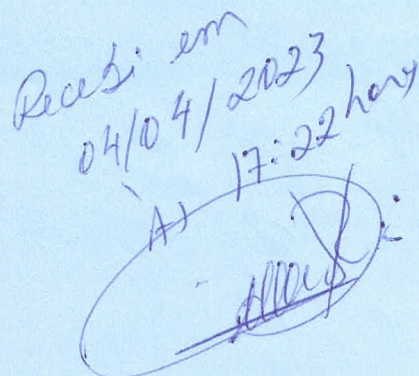 Recebi em
04/04/2023
Às 17:22 horas